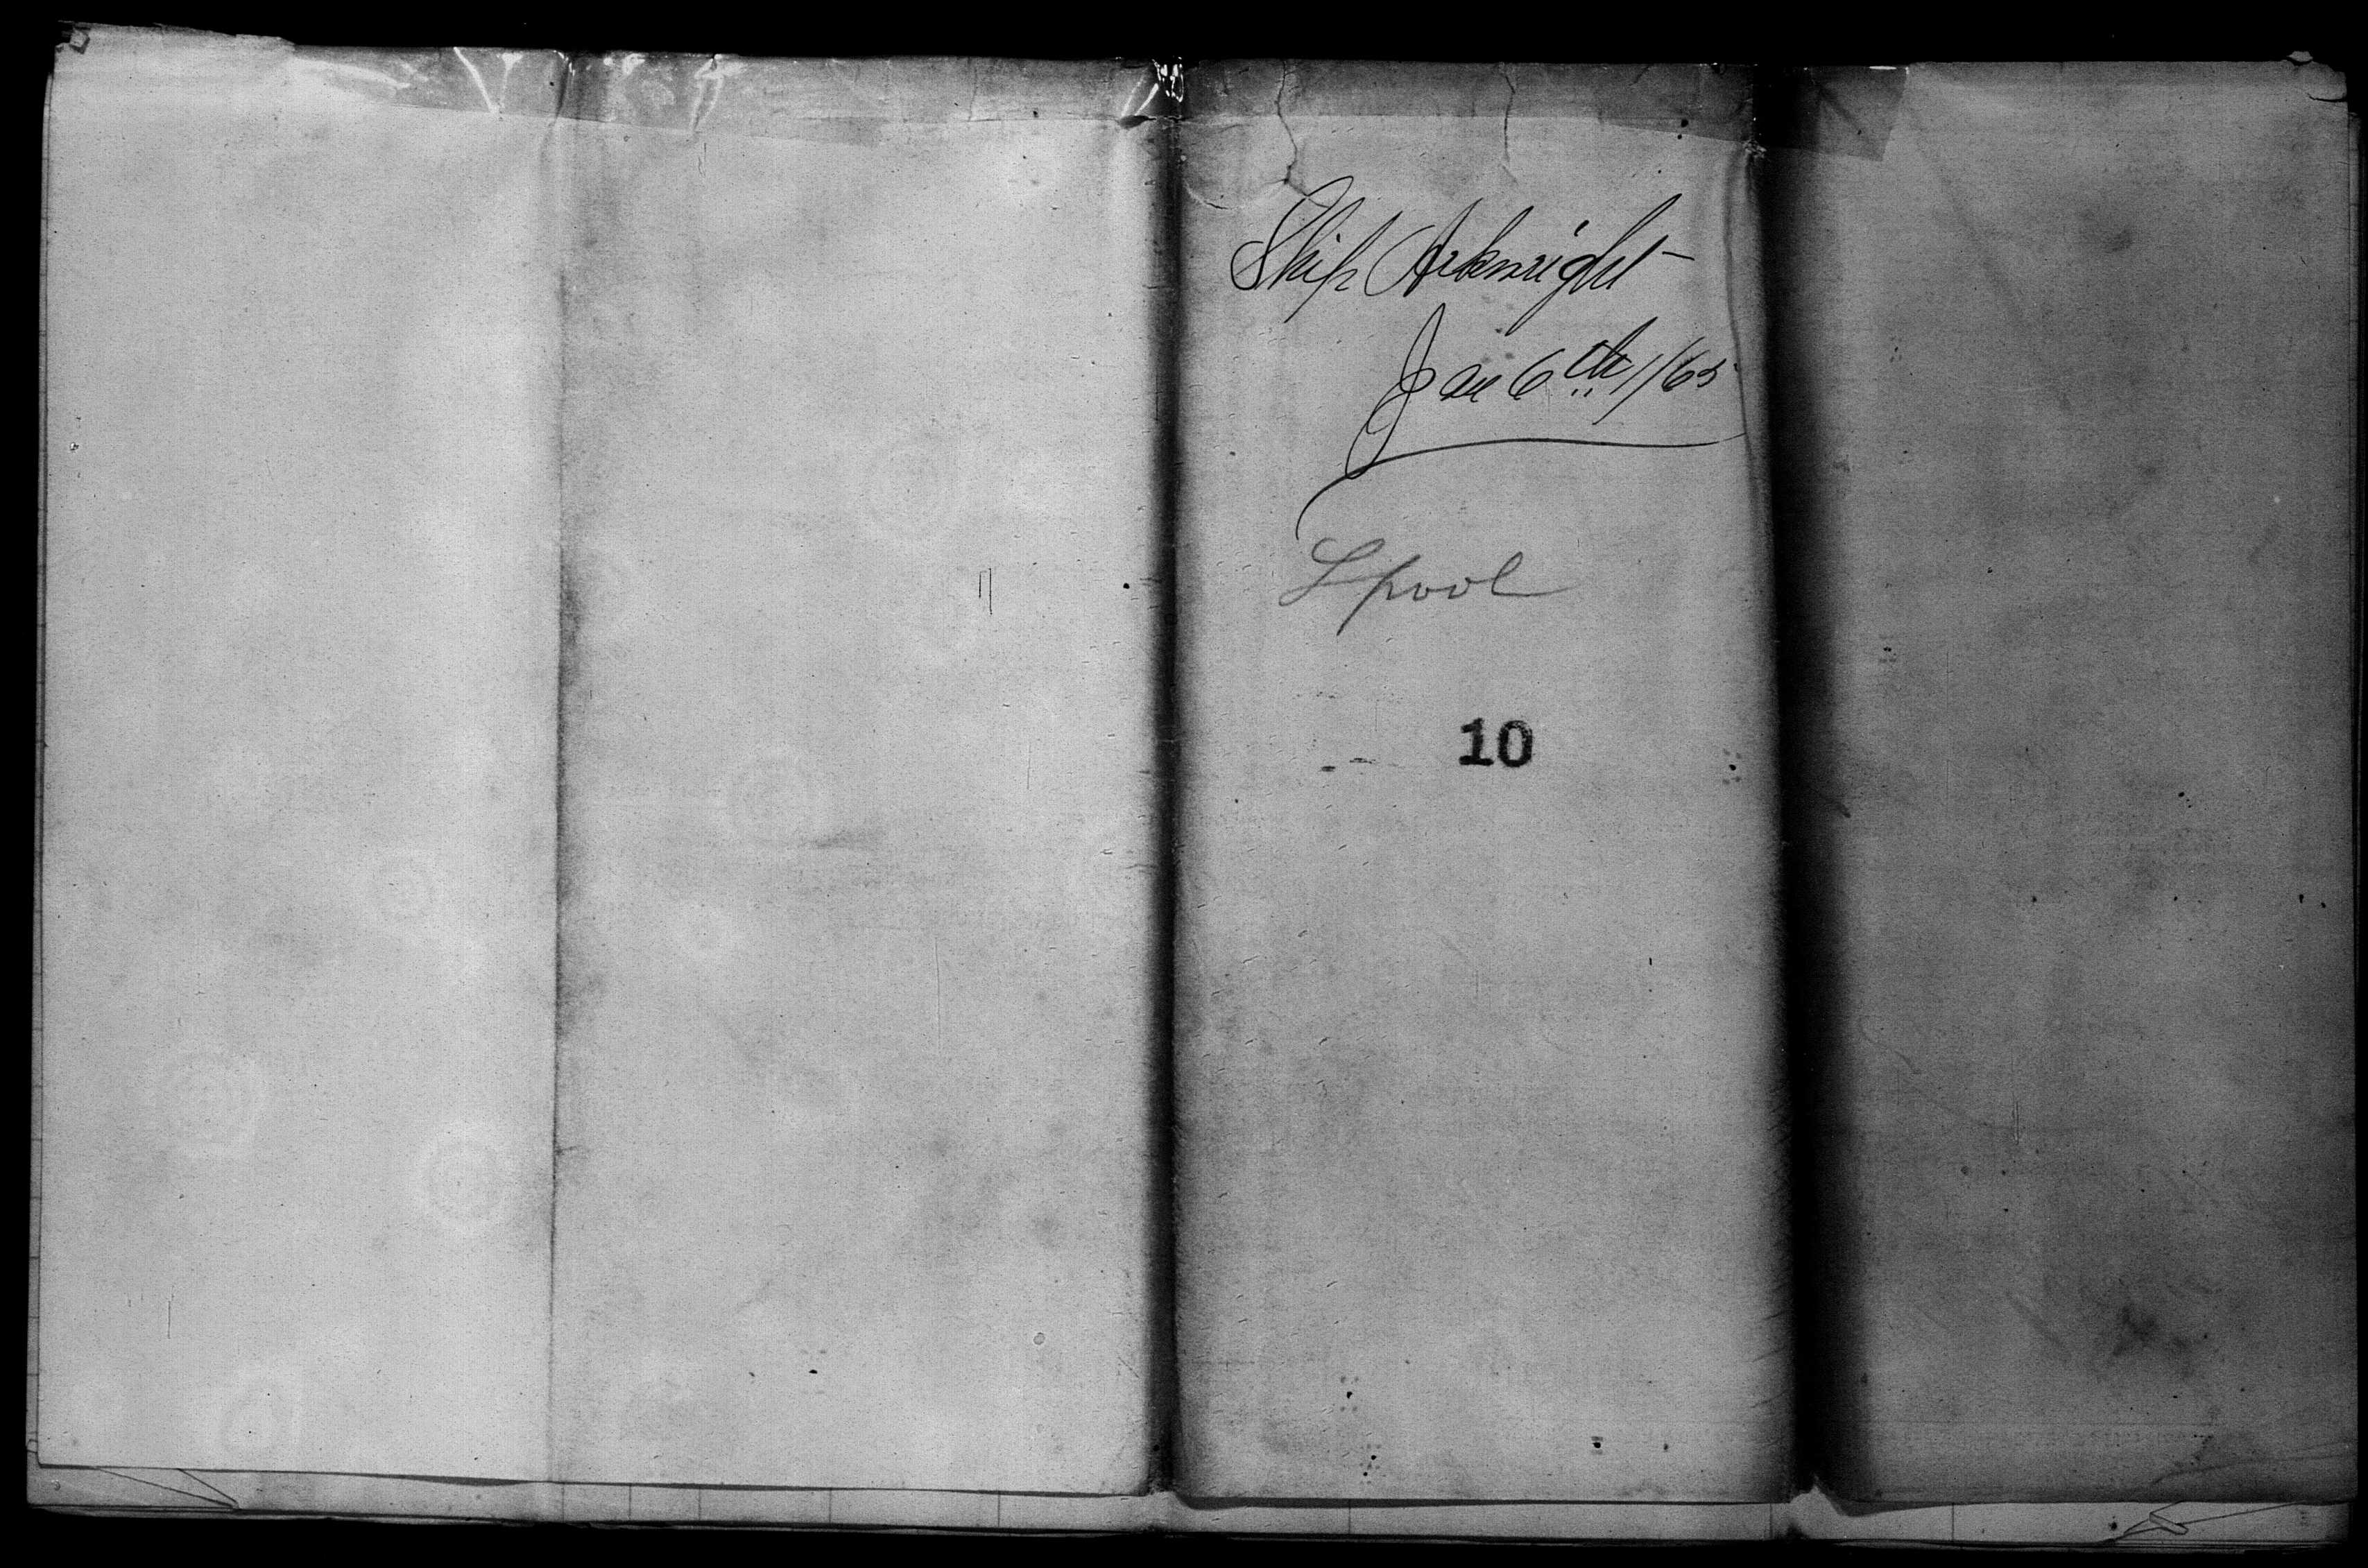 Ship Arkwright
Jan 6th 1/65
Lpool
10